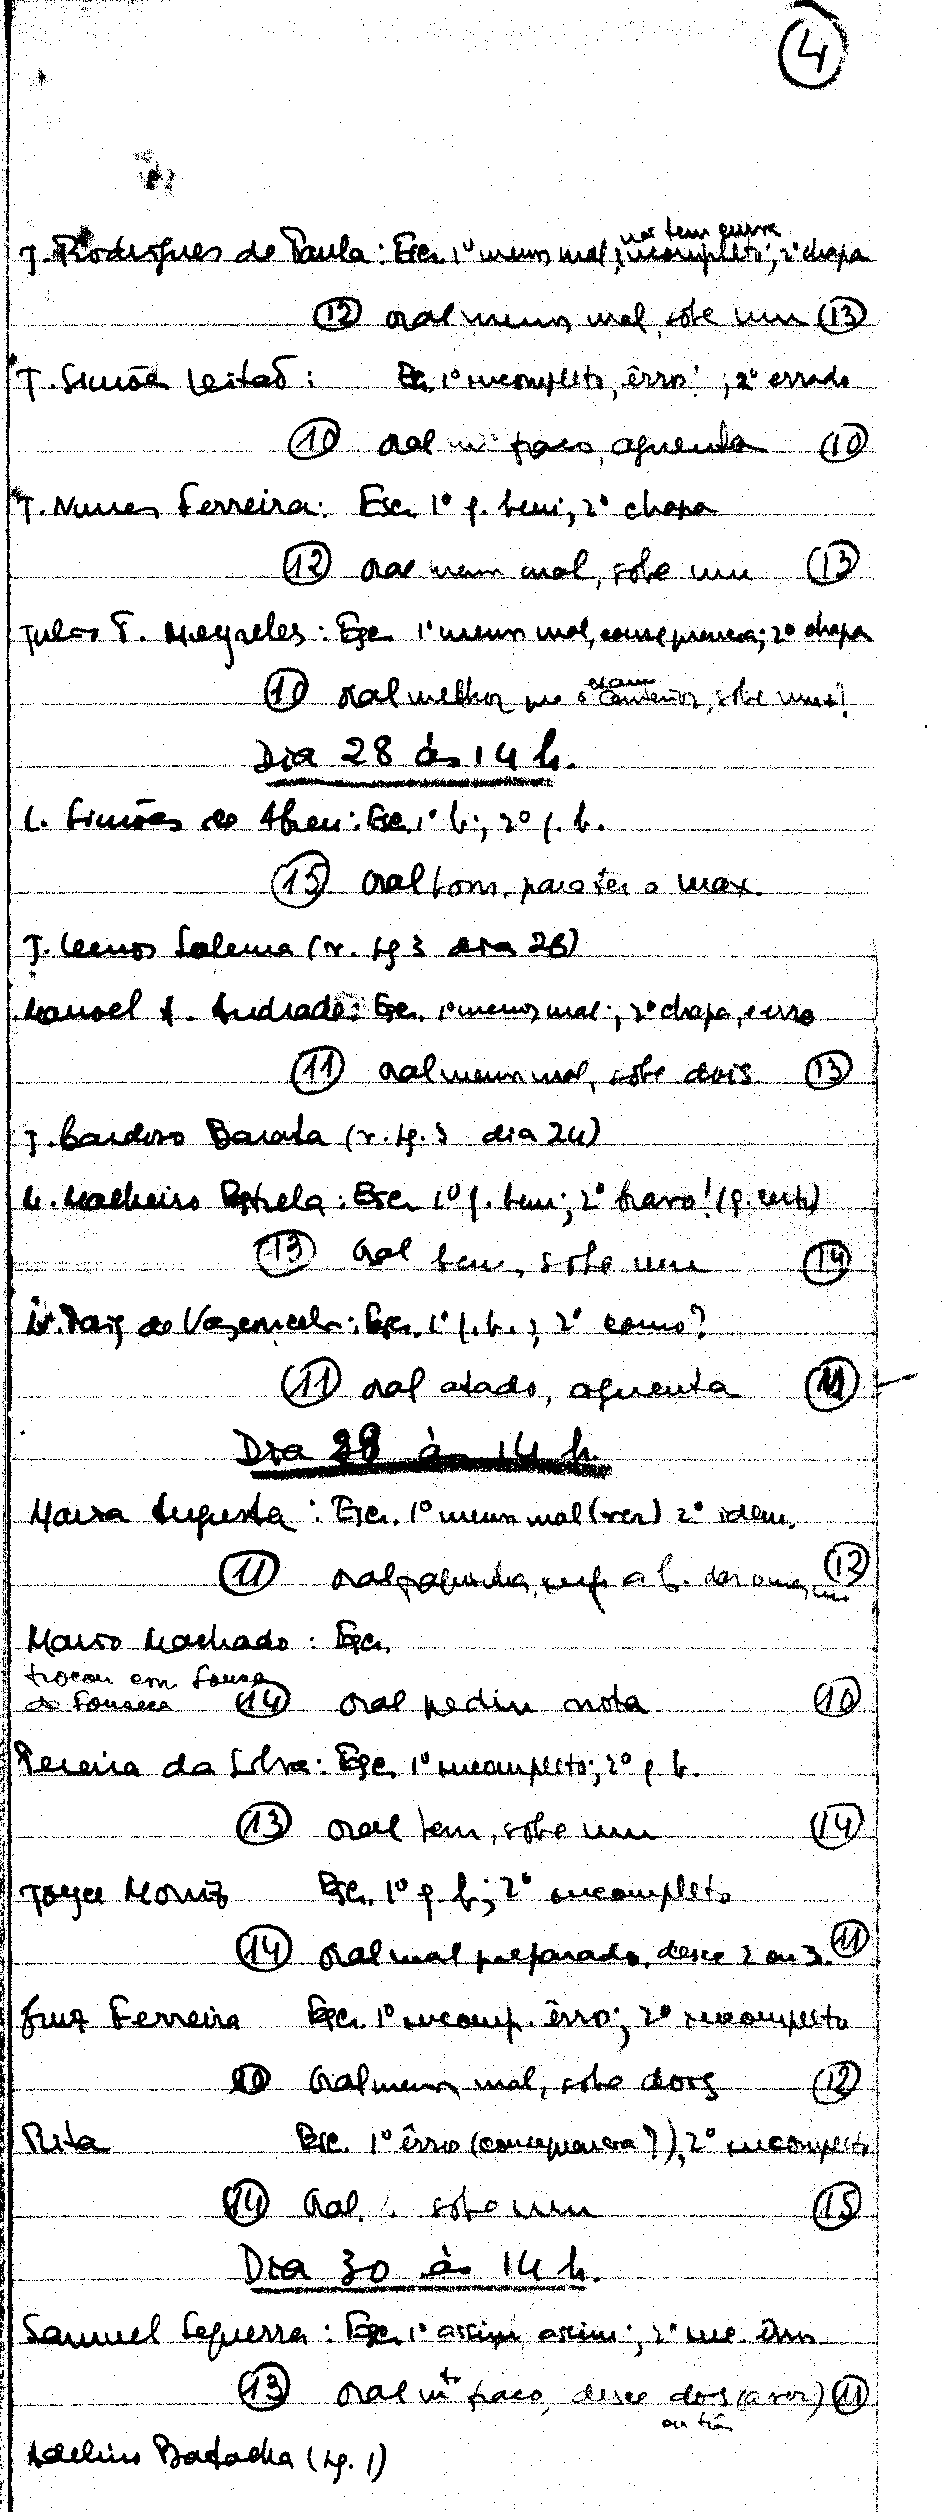 4
não tem curva
J. Rodrigues de Paula: Esc. 1º menos mal, incompleto; 2º chapa
12 oral menos mal, sobe um 13
J. Simões Leitão: Esc. 1º incompleto, êrro!; 2º errado
10 oral mº fraco, aguenta 10
J. Nunes Ferreira: Esc. 1º q. bem; 2º chapa
12 oral menos mal, sobe um 13
T. Meyreles: Esc. 1º menos mal, consequencia; 2º chapa
exame
10 oral melhor que o anterior, sobe um!
Dia 28 às 14 h.
L. Simões de Abreu: Esc. 1º b.; 2º q. b.
15 oral bom, para ter o max.
J. Lemos Salema (v. pg 3 dia 26)
Manoel A. Andrade: Esc. 1º menos mal; 2º chapa, erro
11 oral menos mal, sobe dois 13
J. Cardoso Barata (v. pg. 3 dia 24)
M. Malheiro Estrela: Esc. 1º q. bem; 2º bravo! (q. certo)
13 oral bem, sobe um 14
Paiz de Vasconcelos: Esc. 1º q. b.; 2º como?
11 oral atado, aguenta 11
Dia 29 às 14 h.
Maria Augusta: Esc. 1º menos mal (ver) 2º idem.
11 oral 12
Mario Machado: Esc.
trocou com Sousa
da Fonseca 14 oral pediu nota 10
Pereira da Silva: Esc. 1º incompleto; 2º q. b.
13 oral bem, sobe um 14
Jorge Moniz Esc. 1º q. b.; 2º incompleto
14 oral mal preparado, desce 2 ou 3. 11
Cruz Ferreira Esc. 1º incomp. êrro; 2º incompleto
10 oral menos mal, sobe dois 12
Rita Esc. 1º êrro (consequencia?), 2º incompleto
14 oral b. sobe um 15
Dia 30 às 14 h.
Samuel Seguerra: Esc. 1º assim assim; 2º inc. êrro
13 oral mto fraco, desce dois (a ver) 11
ou três
Adelino Badadha (pg. 1)